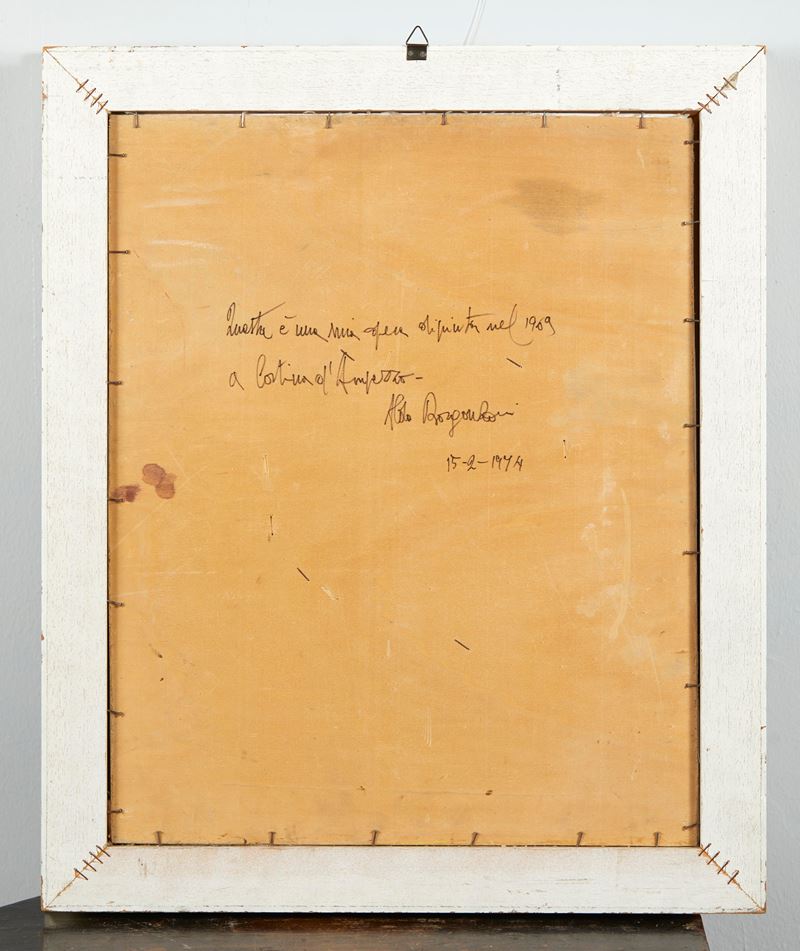 Questa è una mia opera dipinta nel 1909
a Cortina d'Ampezzo -
Aldo Borgonzoni
15-2-1974